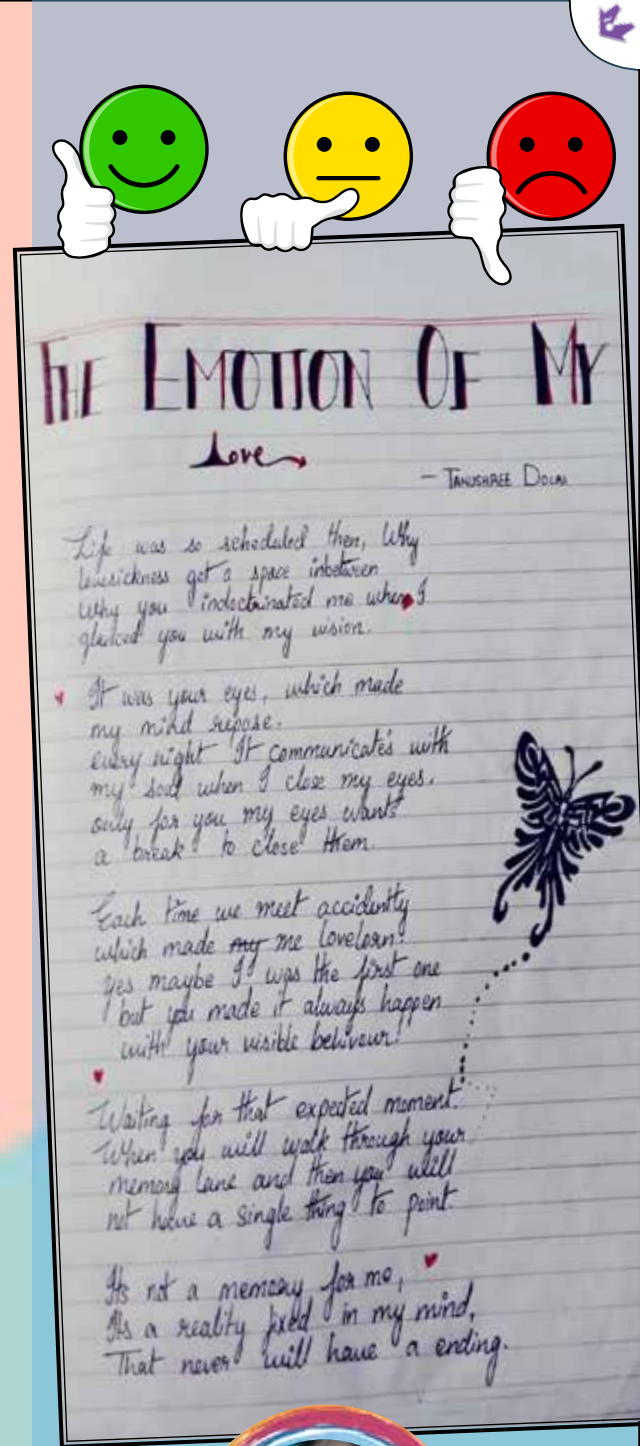 THE EMOTION OF MY
Love
- TANUSHREE
Life was so scheduled then, Why
lovesickness got a space inbetween
Why you indoctrinated me when I
glanced you with my vision.
It was your eyes, which made
my mind repose.
every night It communicates with
my soul when I close my eyes.
only for you my eyes wants
a break to close them.
Each time we meet accidently
which made my me lovelorn!
yes maybe I was the first one
but you made it always happen
with your visible behivour!
Waiting for that expected moment.
When you will walk through your
memory lane and then you will
not have a single thing to point.
Its not a memory for me,
Its a reality fixed in my mind,
That never will have a ending.